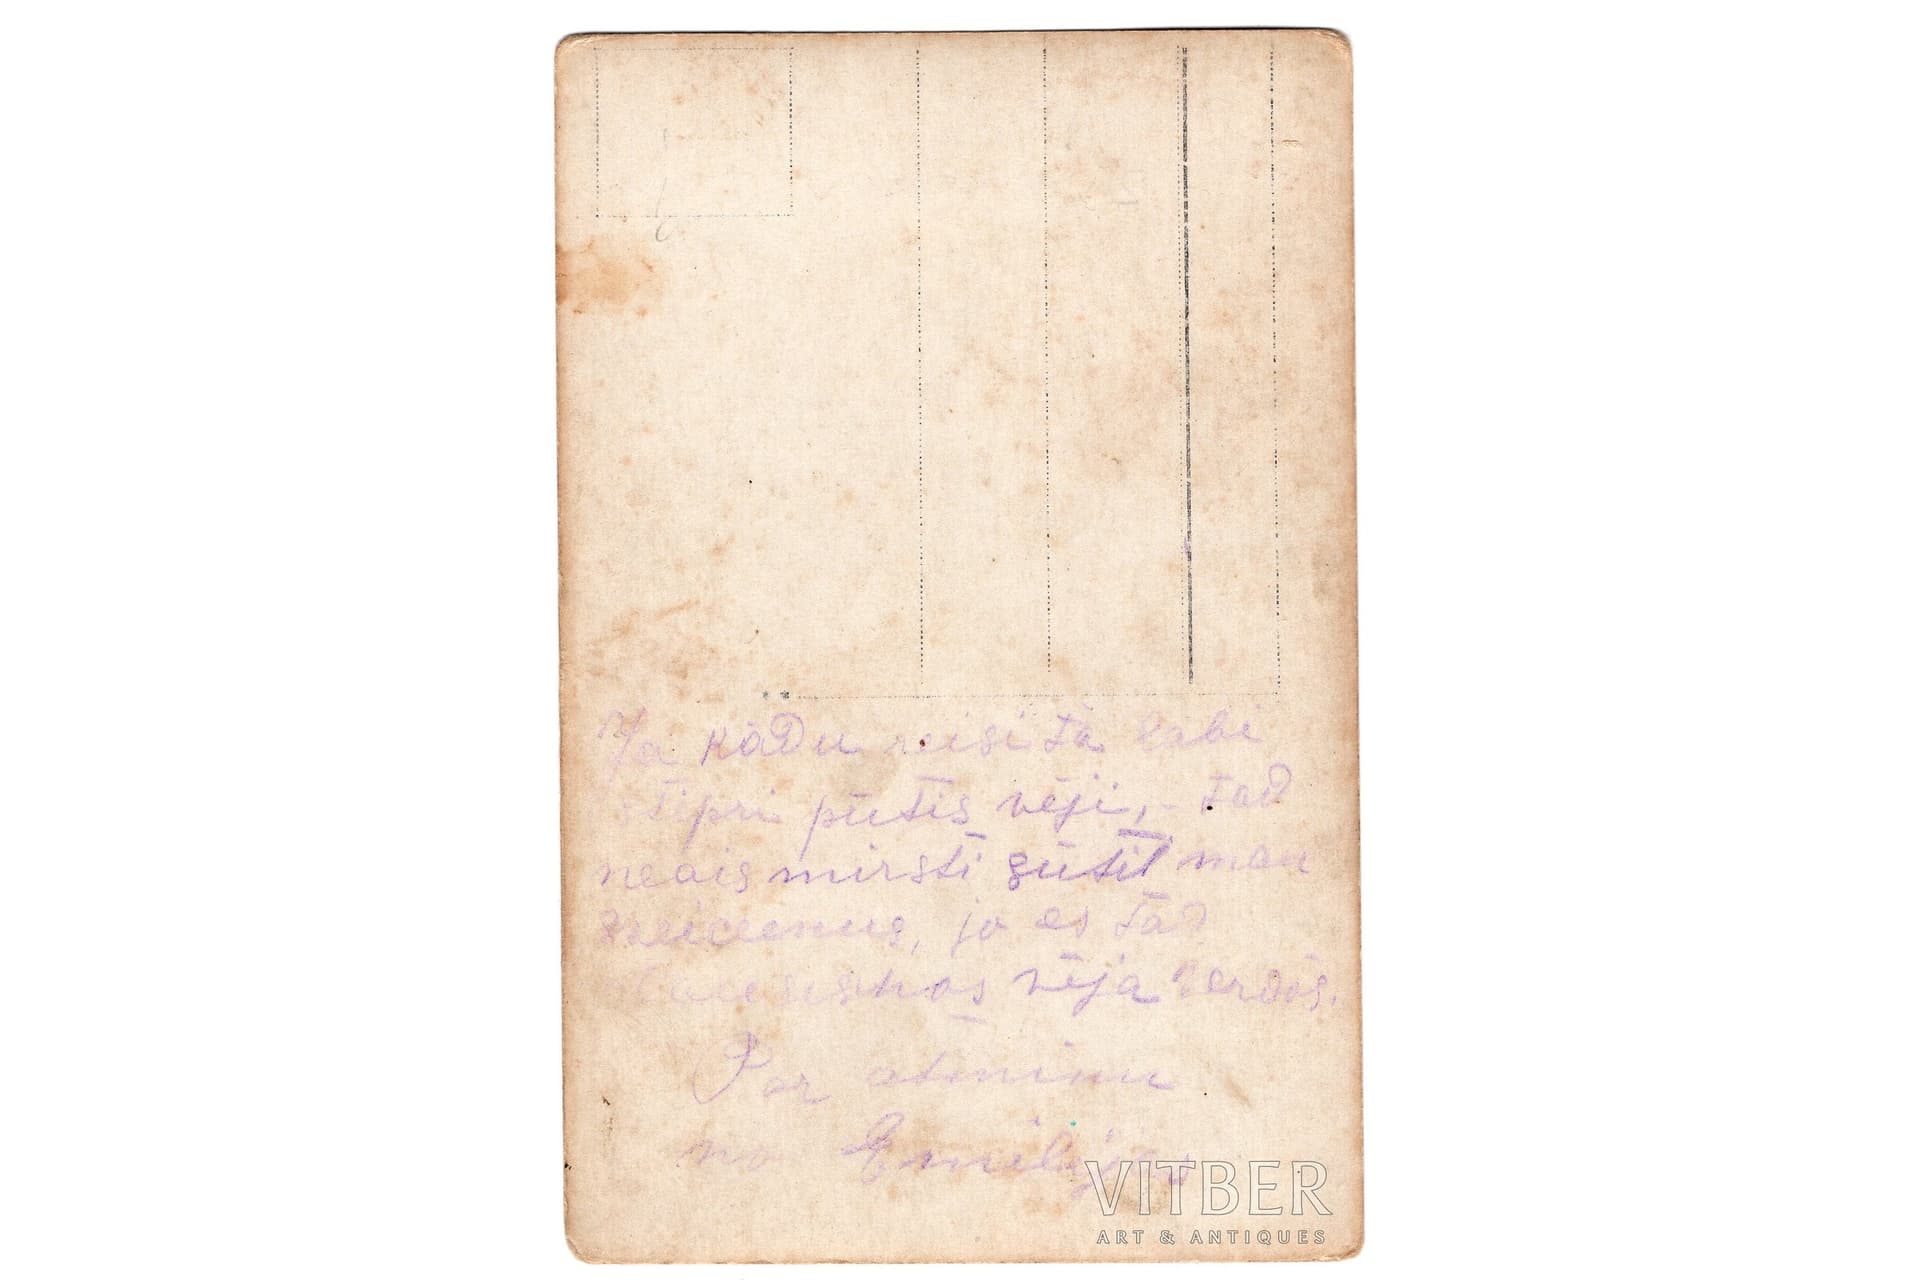 Ja kādu reisi tā labi
stipri pūtīs vēji, - tad
neais mirsti sūtīt man
sveicienus, jo es tad
vēja
Par atmiņu
no Emīlijas
VITBER
ART & ANTIQUES